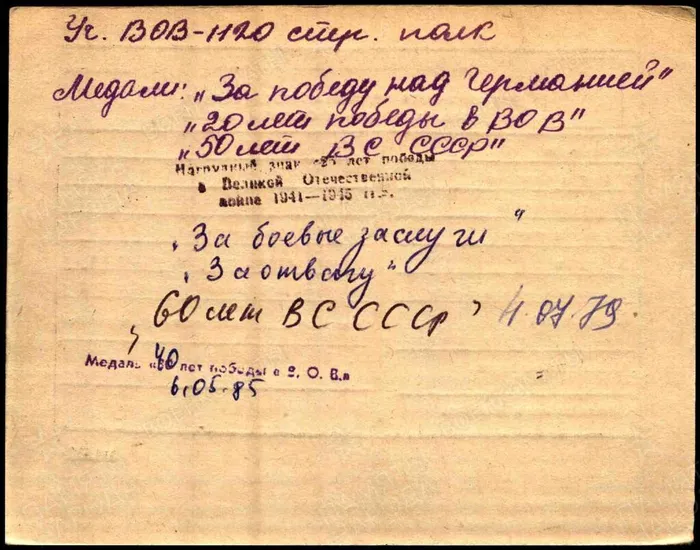 Уч. ВОВ-1120 стр. полк
Медали: „За победу над Германией"
„20 лет победы в ВОВ"
„50 лет ВС СССР"
Нагрудный знак «25 лет победы
в Великой Отечественной
войне 1941—1945 гг».
„За боевые заслуги"
„За отвагу"
„60 лет ВС СССР" 4.07.79
40
Медаль « лет победы в В. О. В.»
6.05.85